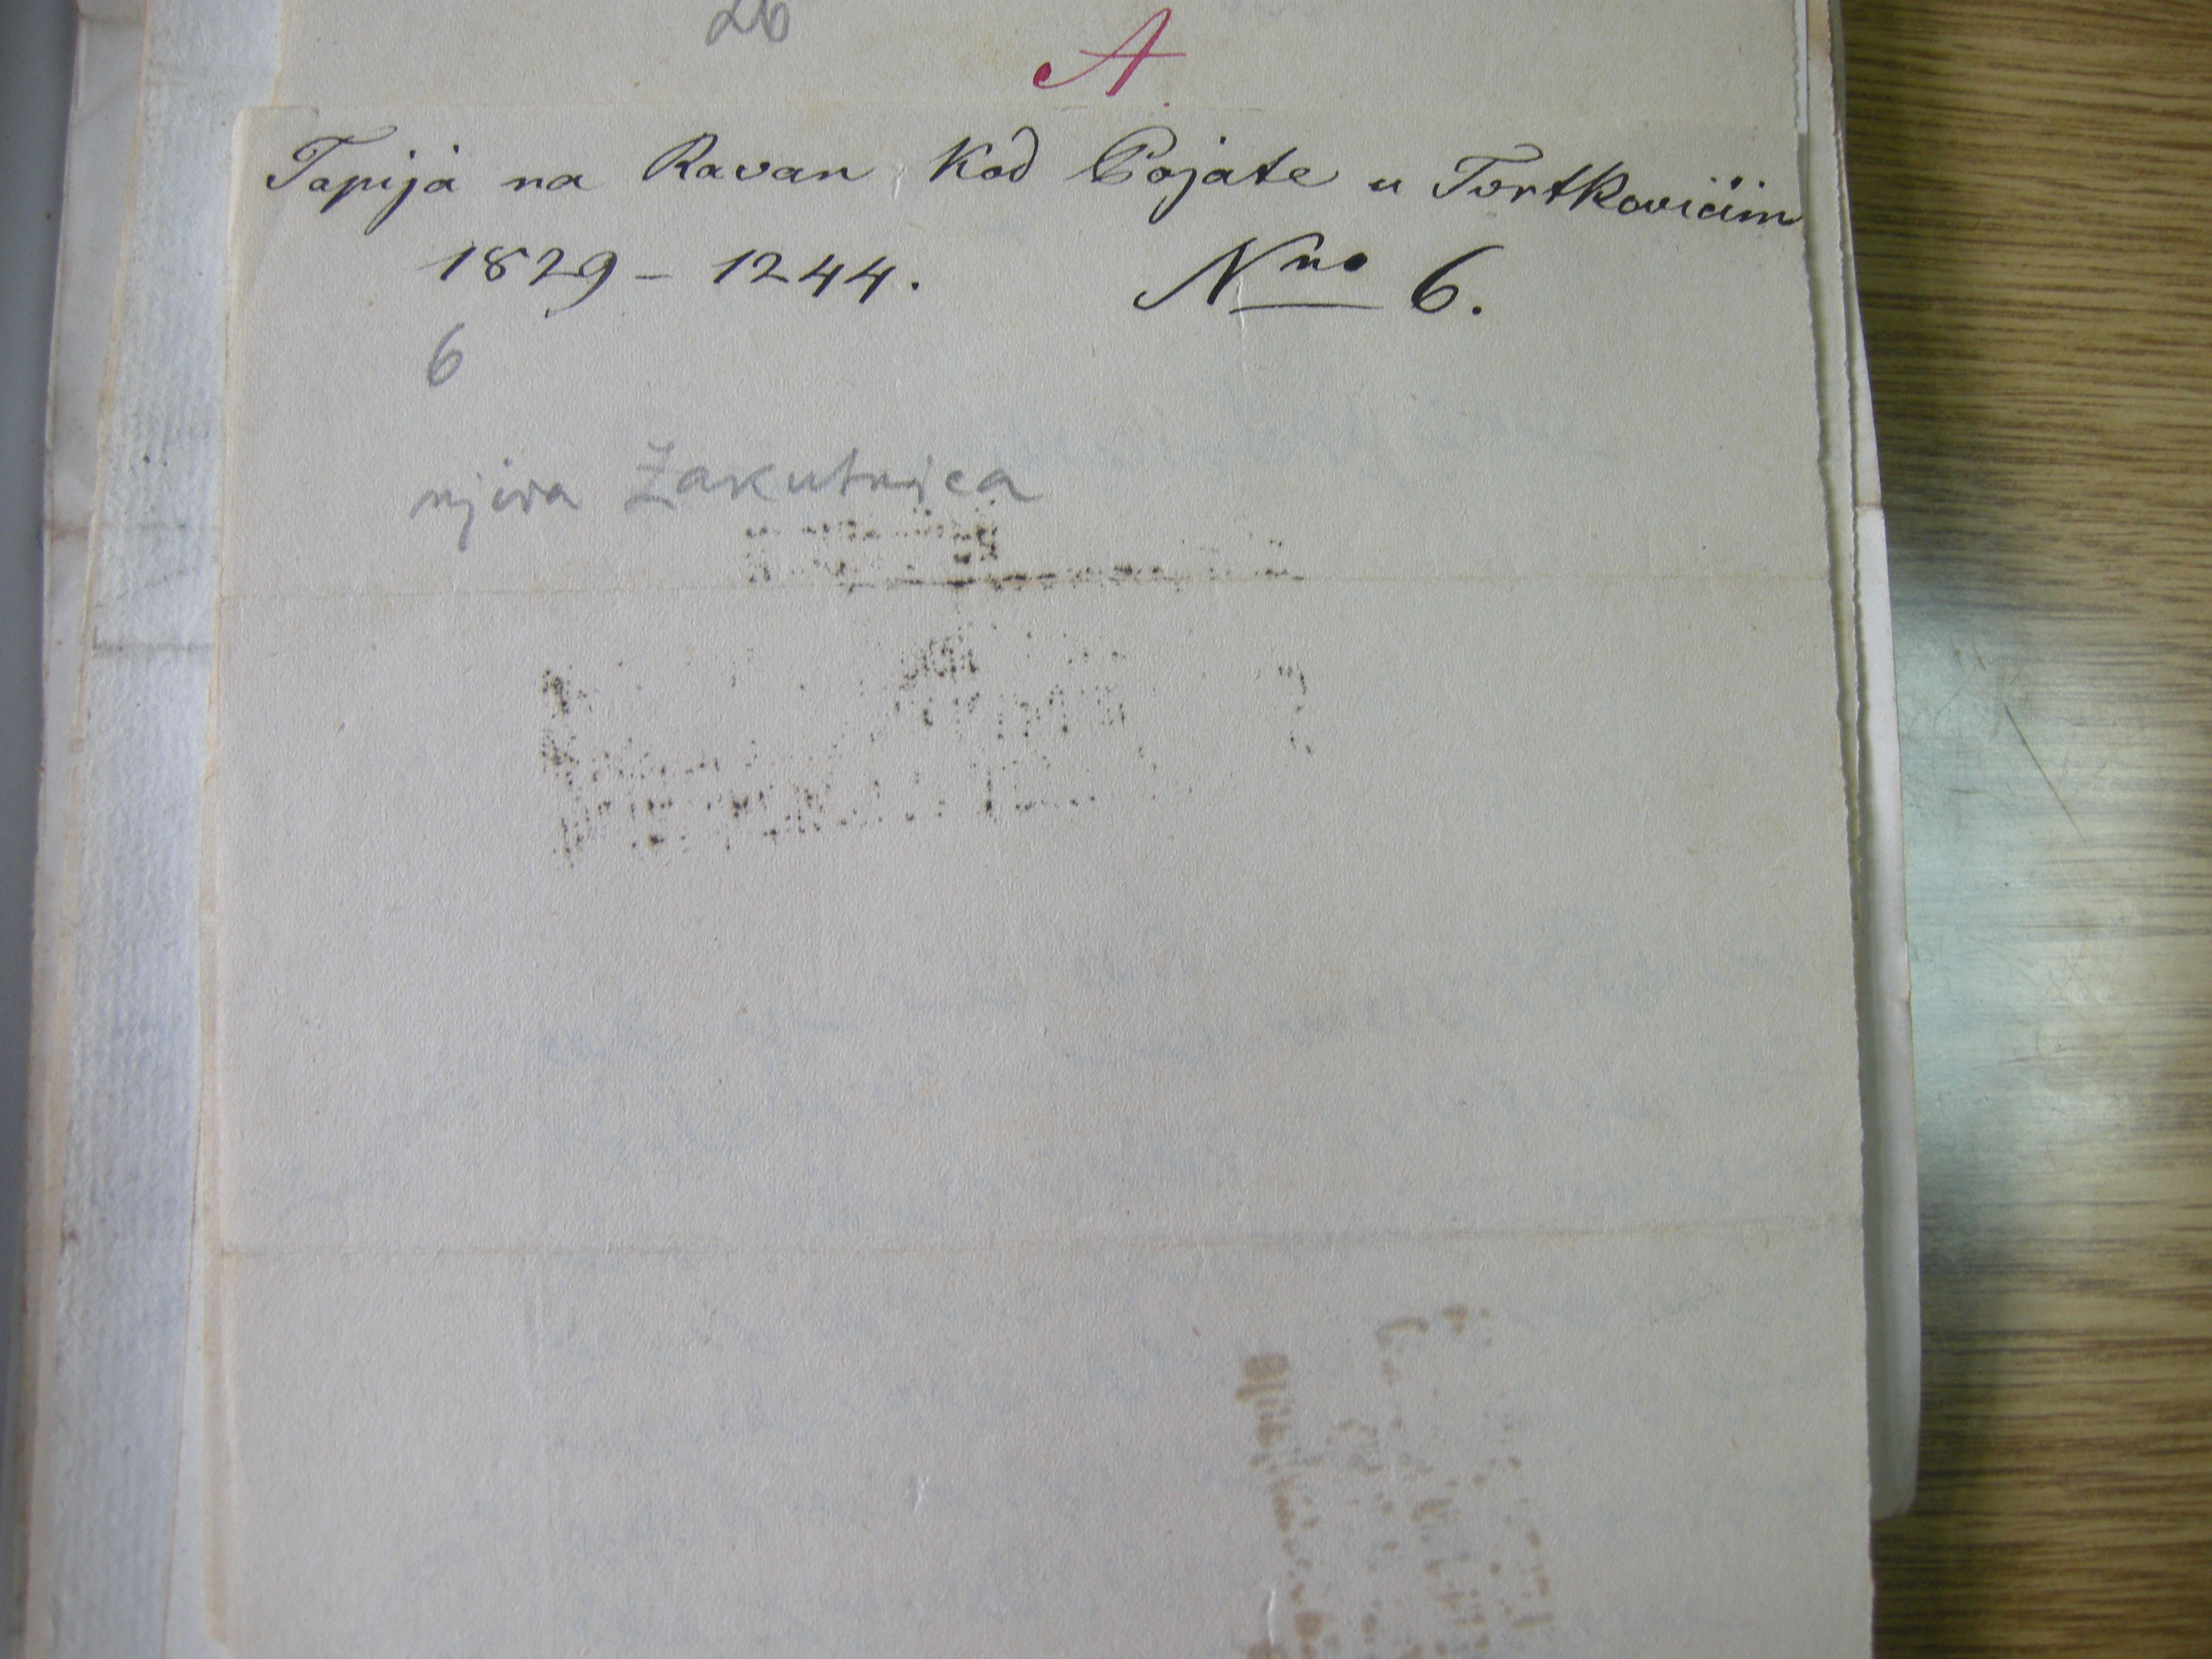 26
A
Tapija na Ravan kod Pojate u Tvrtkovićim
1829 – 1244. Nno 6.
6
njiva Zakutnica